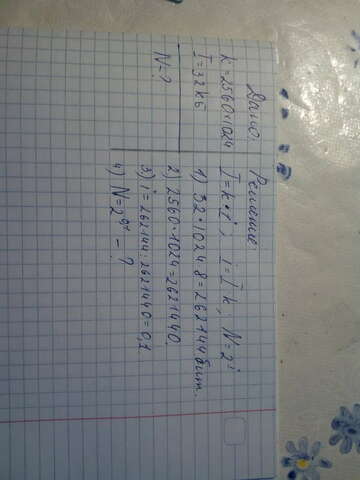 Дано:
k = 2560·1024
I = 32 кБ
N = ?
Решение
I = k·i ; i = I k ; N = 2^i
1) 32·1024 8 = 262144 бит.
2) 2560·1024 = 2621440.
3) i = 262144 : 2621440 = 0,1
4) N = 2^0,1 - ?